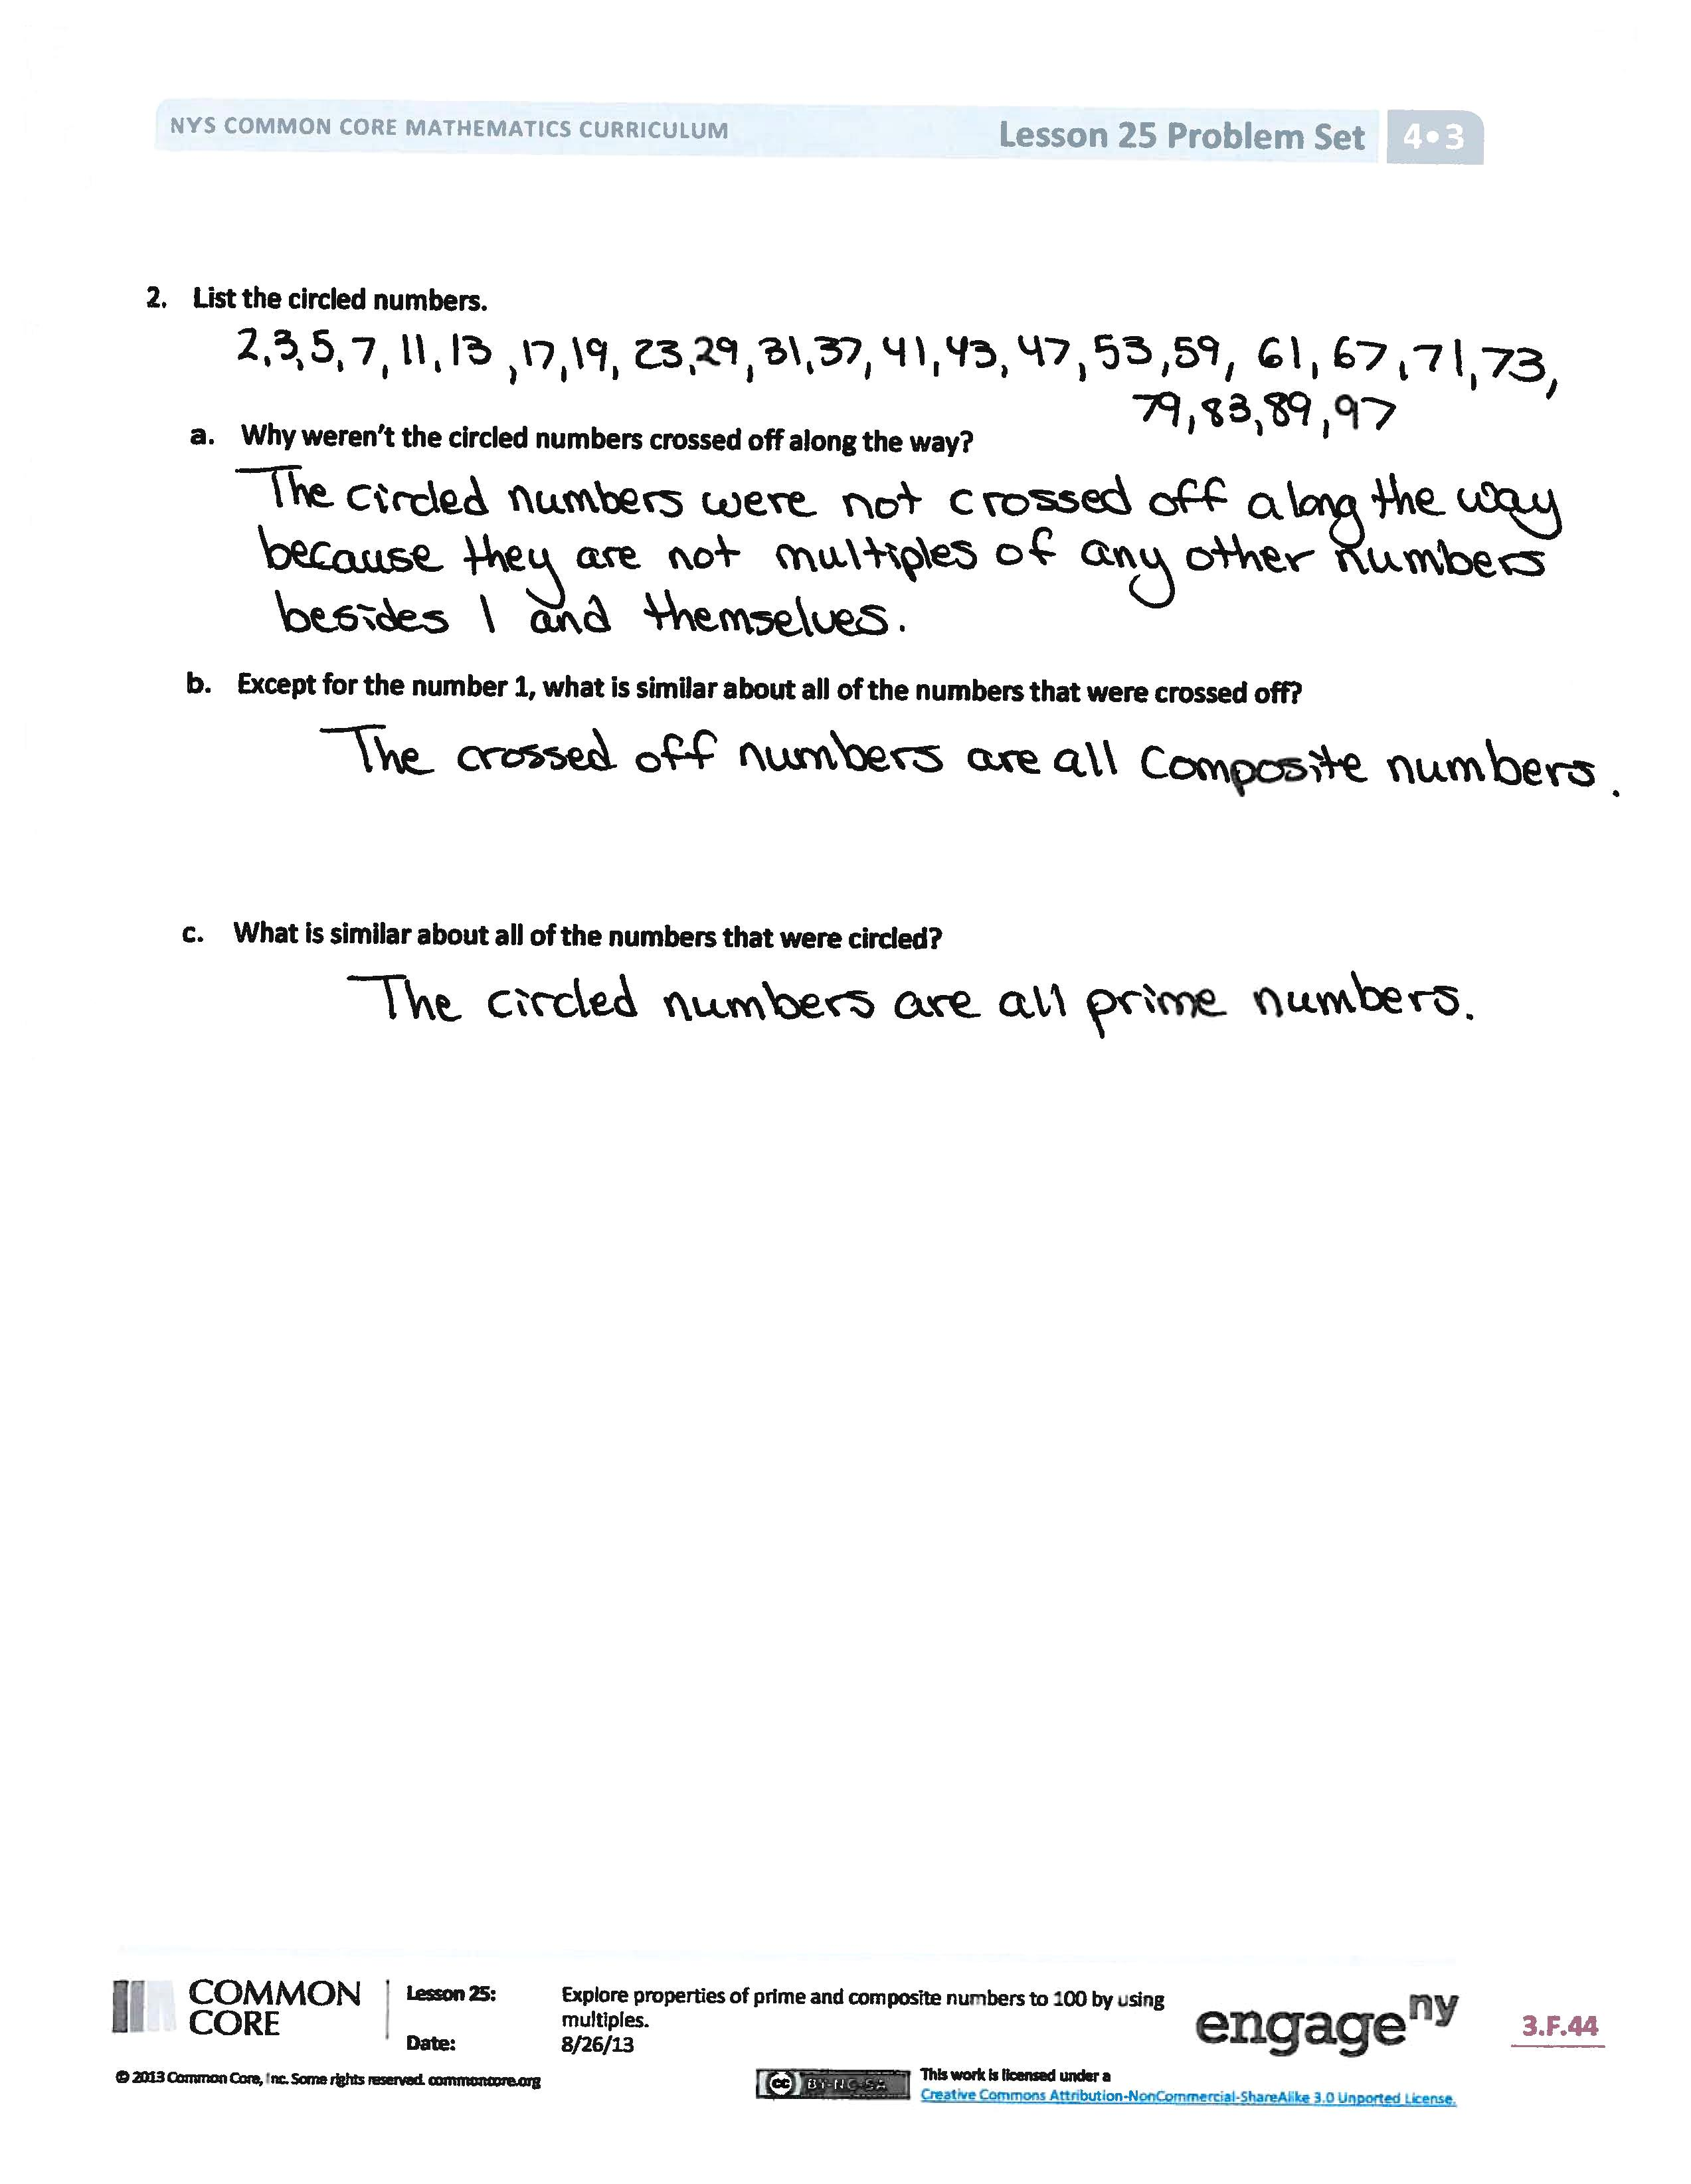 NYS COMMON CORE MATHEMATICS CURRICULUM Lesson 25 Problem Set 4•3
2. List the circled numbers.
2,3,5,7,11,13,17,19,23,29,31,37,41,43,47,53,59,61,67,71,73,
79,83,89,97
a. Why weren't the circled numbers crossed off along the way?
The circled numbers were not crossed off along the way
because they are not multiples of any other numbers
besides 1 and themselves.
b. Except for the number 1, what is similar about all of the numbers that were crossed off?
The crossed off numbers are all composite numbers.
c. What is similar about all of the numbers that were circled?
The circled numbers are all prime numbers.
COMMON
CORE
Lesson 25: Explore properties of prime and composite numbers to 100 by using
multiples.
Date: 8/26/13
engage ny
3.F.44
© 2013 Common Core, Inc. Some rights reserved. commoncore.org
cc BY-NC-SA
This work is licensed under a
Creative Commons Attribution-NonCommercial-ShareAlike 3.0 Unported License.